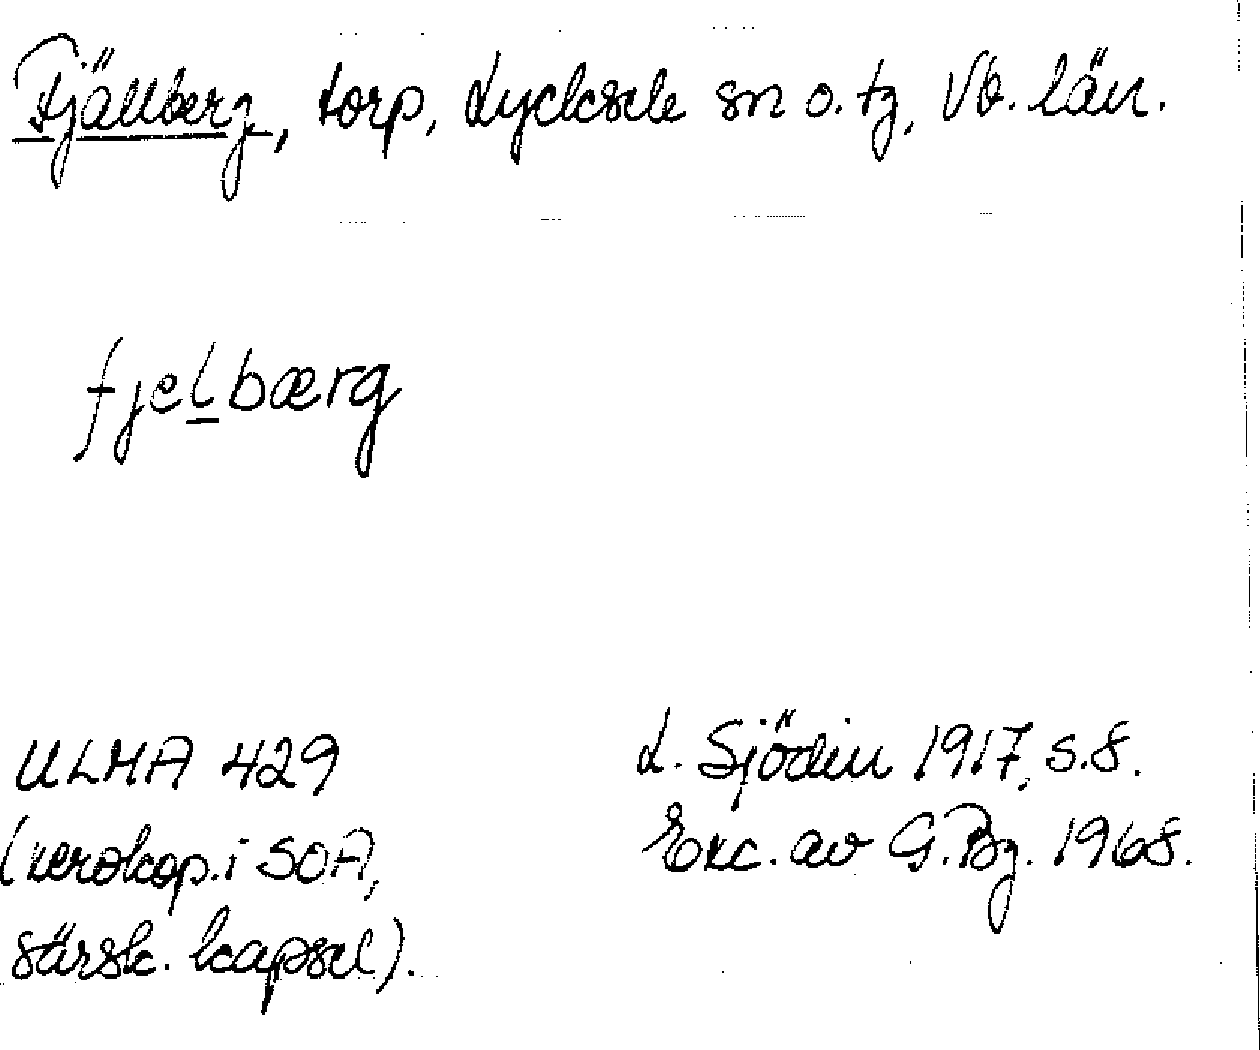 Fjällberg, torp, Lycksele sn o. tg, Vb. län.
fjelbærg
ULMA 429
(xerokop. i SOA,
särsk. kapsel).
L. Sjödin 1917, s. 8.
Exc. av G. Bg. 1968.